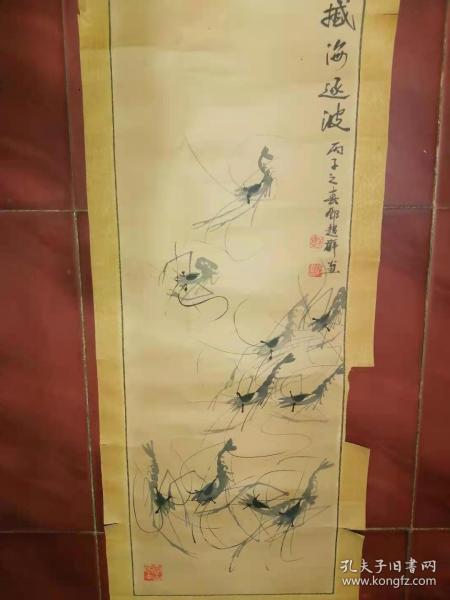 撼海逐波
丙子之春邹超群画
孔夫子旧书网
www.kongfz.com